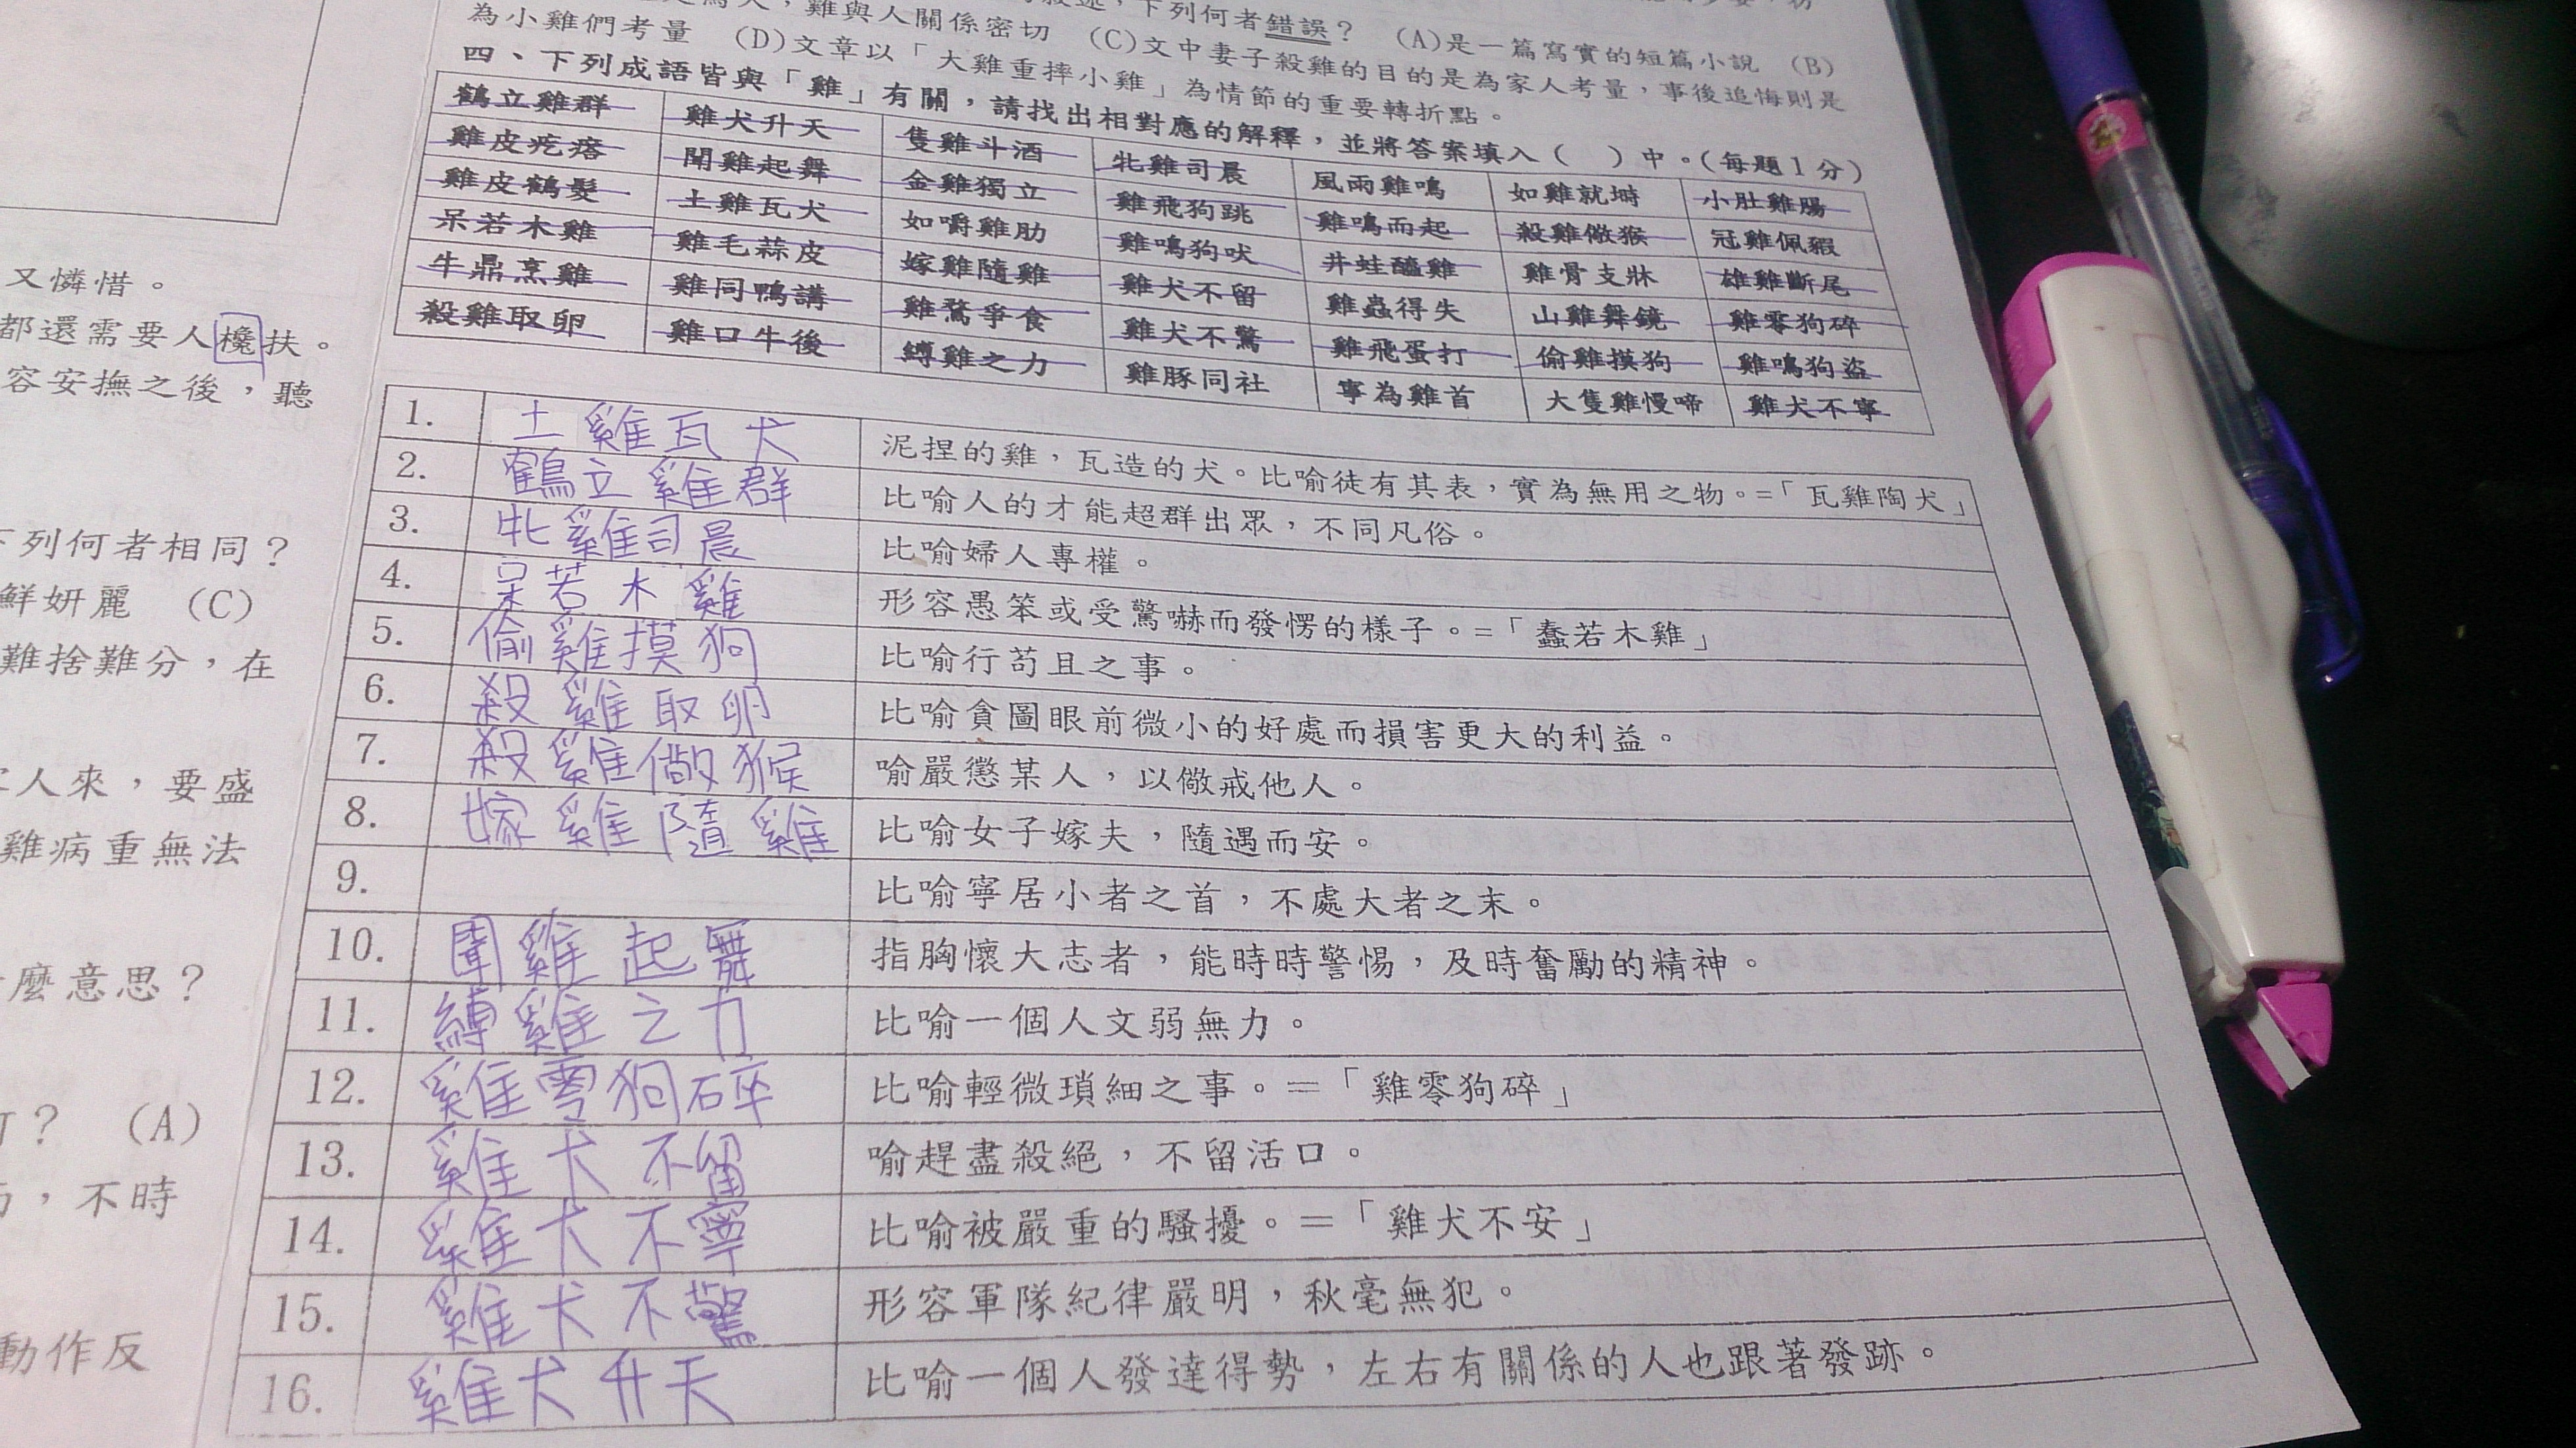 下列何者錯誤？ (A)是一篇寫實的短篇小說 (B)
雞與人關係密切 (C)文中妻子殺雞的目的是為家人考量，事後追悔則是
為小雞們考量 (D)文章以「大雞重摔小雞」為情節的重要轉折點。
四、下列成語皆與「雞」有關，請找出相對應的解釋，並將答案填入（ ）中。(每題1分)
鶴立雞群 雞犬升天 隻雞斗酒 牝雞司晨 風雨雞鳴 如雞就塒 小肚雞腸
雞皮疙瘩 聞雞起舞 金雞獨立 雞飛狗跳 雞鳴而起 殺雞儆猴 冠雞佩猳
雞皮鶴髮 土雞瓦犬 如嚼雞肋 雞鳴狗吠 井蛙醯雞 雞骨支牀 雄雞斷尾
呆若木雞 雞毛蒜皮 嫁雞隨雞 雞犬不留 雞蟲得失 山雞舞鏡 雞零狗碎
牛鼎烹雞 雞同鴨講 雞鶩爭食 雞犬不驚 雞飛蛋打 偷雞摸狗 雞鳴狗盜
殺雞取卵 雞口牛後 縛雞之力 雞豚同社 寧為雞首 大隻雞慢啼 雞犬不寧
1. 土雞瓦犬 泥捏的雞，瓦造的犬。比喻徒有其表，實為無用之物。=「瓦雞陶犬」
2. 鶴立雞群 比喻人的才能超群出眾，不同凡俗。
3. 牝雞司晨 比喻婦人專權。
4. 呆若木雞 形容愚笨或受驚嚇而發愣的樣子。=「蠢若木雞」
5. 偷雞摸狗 比喻行苟且之事。
6. 殺雞取卵 比喻貪圖眼前微小的好處而損害更大的利益。
7. 殺雞儆猴 喻嚴懲某人，以儆戒他人。
8. 嫁雞隨雞 比喻女子嫁夫，隨遇而安。
9. 比喻寧居小者之首，不處大者之末。
10. 聞雞起舞 指胸懷大志者，能時時警惕，及時奮勵的精神。
11. 縛雞之力 比喻一個人文弱無力。
12. 雞零狗碎 比喻輕微瑣細之事。＝「雞零狗碎」
13. 雞犬不留 喻趕盡殺絕，不留活口。
14. 雞犬不寧 比喻被嚴重的騷擾。＝「雞犬不安」
15. 雞犬不驚 形容軍隊紀律嚴明，秋毫無犯。
16. 雞犬升天 比喻一個人發達得勢，左右有關係的人也跟著發跡。
又憐惜。
都還需要人欃扶。
容安撫之後，聽
下列何者相同？
鮮妍麗 (C)
難捨難分，在
人來，要盛
雞病重無法
麼意思？
？ (A)
，不時
動作反